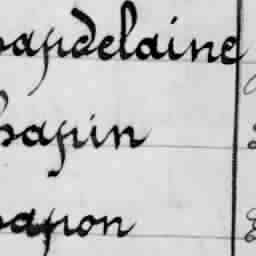 hapdelaine
hapin
hapon